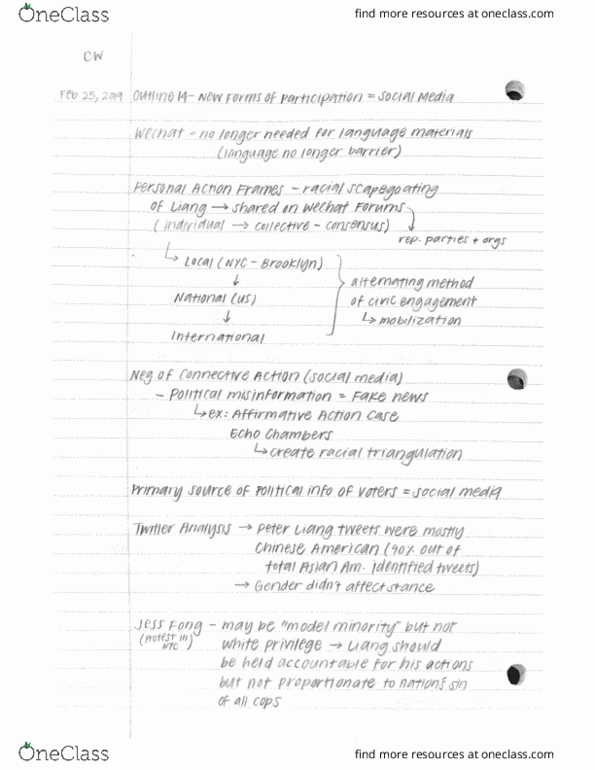 OneClass
find more resources at oneclass.com
CW
Feb 25, 2019 Outline 14 - New Forms of Participation = Social Media
WeChat - no longer needed for language materials
(language no longer barrier)
Personal Action Frames - racial scapegoating
of Liang → shared on WeChat Forums
(individual → collective - consensus)
rep. parties + orgs
↳ Local (NYC - Brooklyn)
↓
National (US)
↓
International
alternating method
of civic engagement
↳ mobilization
Neg of Connective Action (social media)
- Political misinformation = Fake news
↳ ex: Affirmative Action Case
Echo Chambers
↳ create racial triangulation
Primary source of political info of voters = social media
Twitter Analysis → Peter Liang tweets were mostly
Chinese American (90% out of
total Asian Am. identified tweets)
→ Gender didn't affect stance
Jess Fong - may be "model minority" but not
(Protest in NYC) white privilege → Liang should
be held accountable for his actions
but not proportionate to nation's sin
of all cops
OneClass
find more resources at oneclass.com